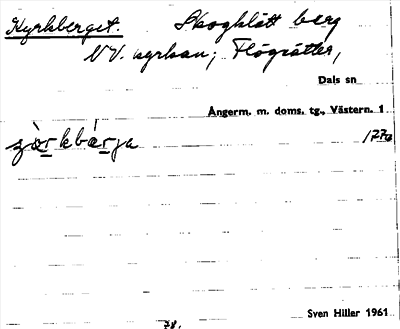 Kyrkberget. Skogklätt berg
NV. kyrkan; Flögrötter,
Dals sn
Ångerm. m. doms. tg., Västern. 1
177a
Sven Hiller 1961
78.